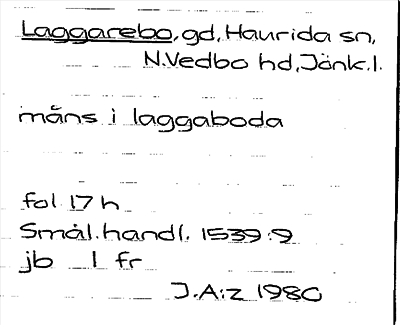 Laggarebo, gd, Haurida sn,
N. Vedbo hd, Jönk. l.
måns i laggaboda
fol 17 h
Smål. handl. 1539:9
jb 1 fr
J.A:z 1980